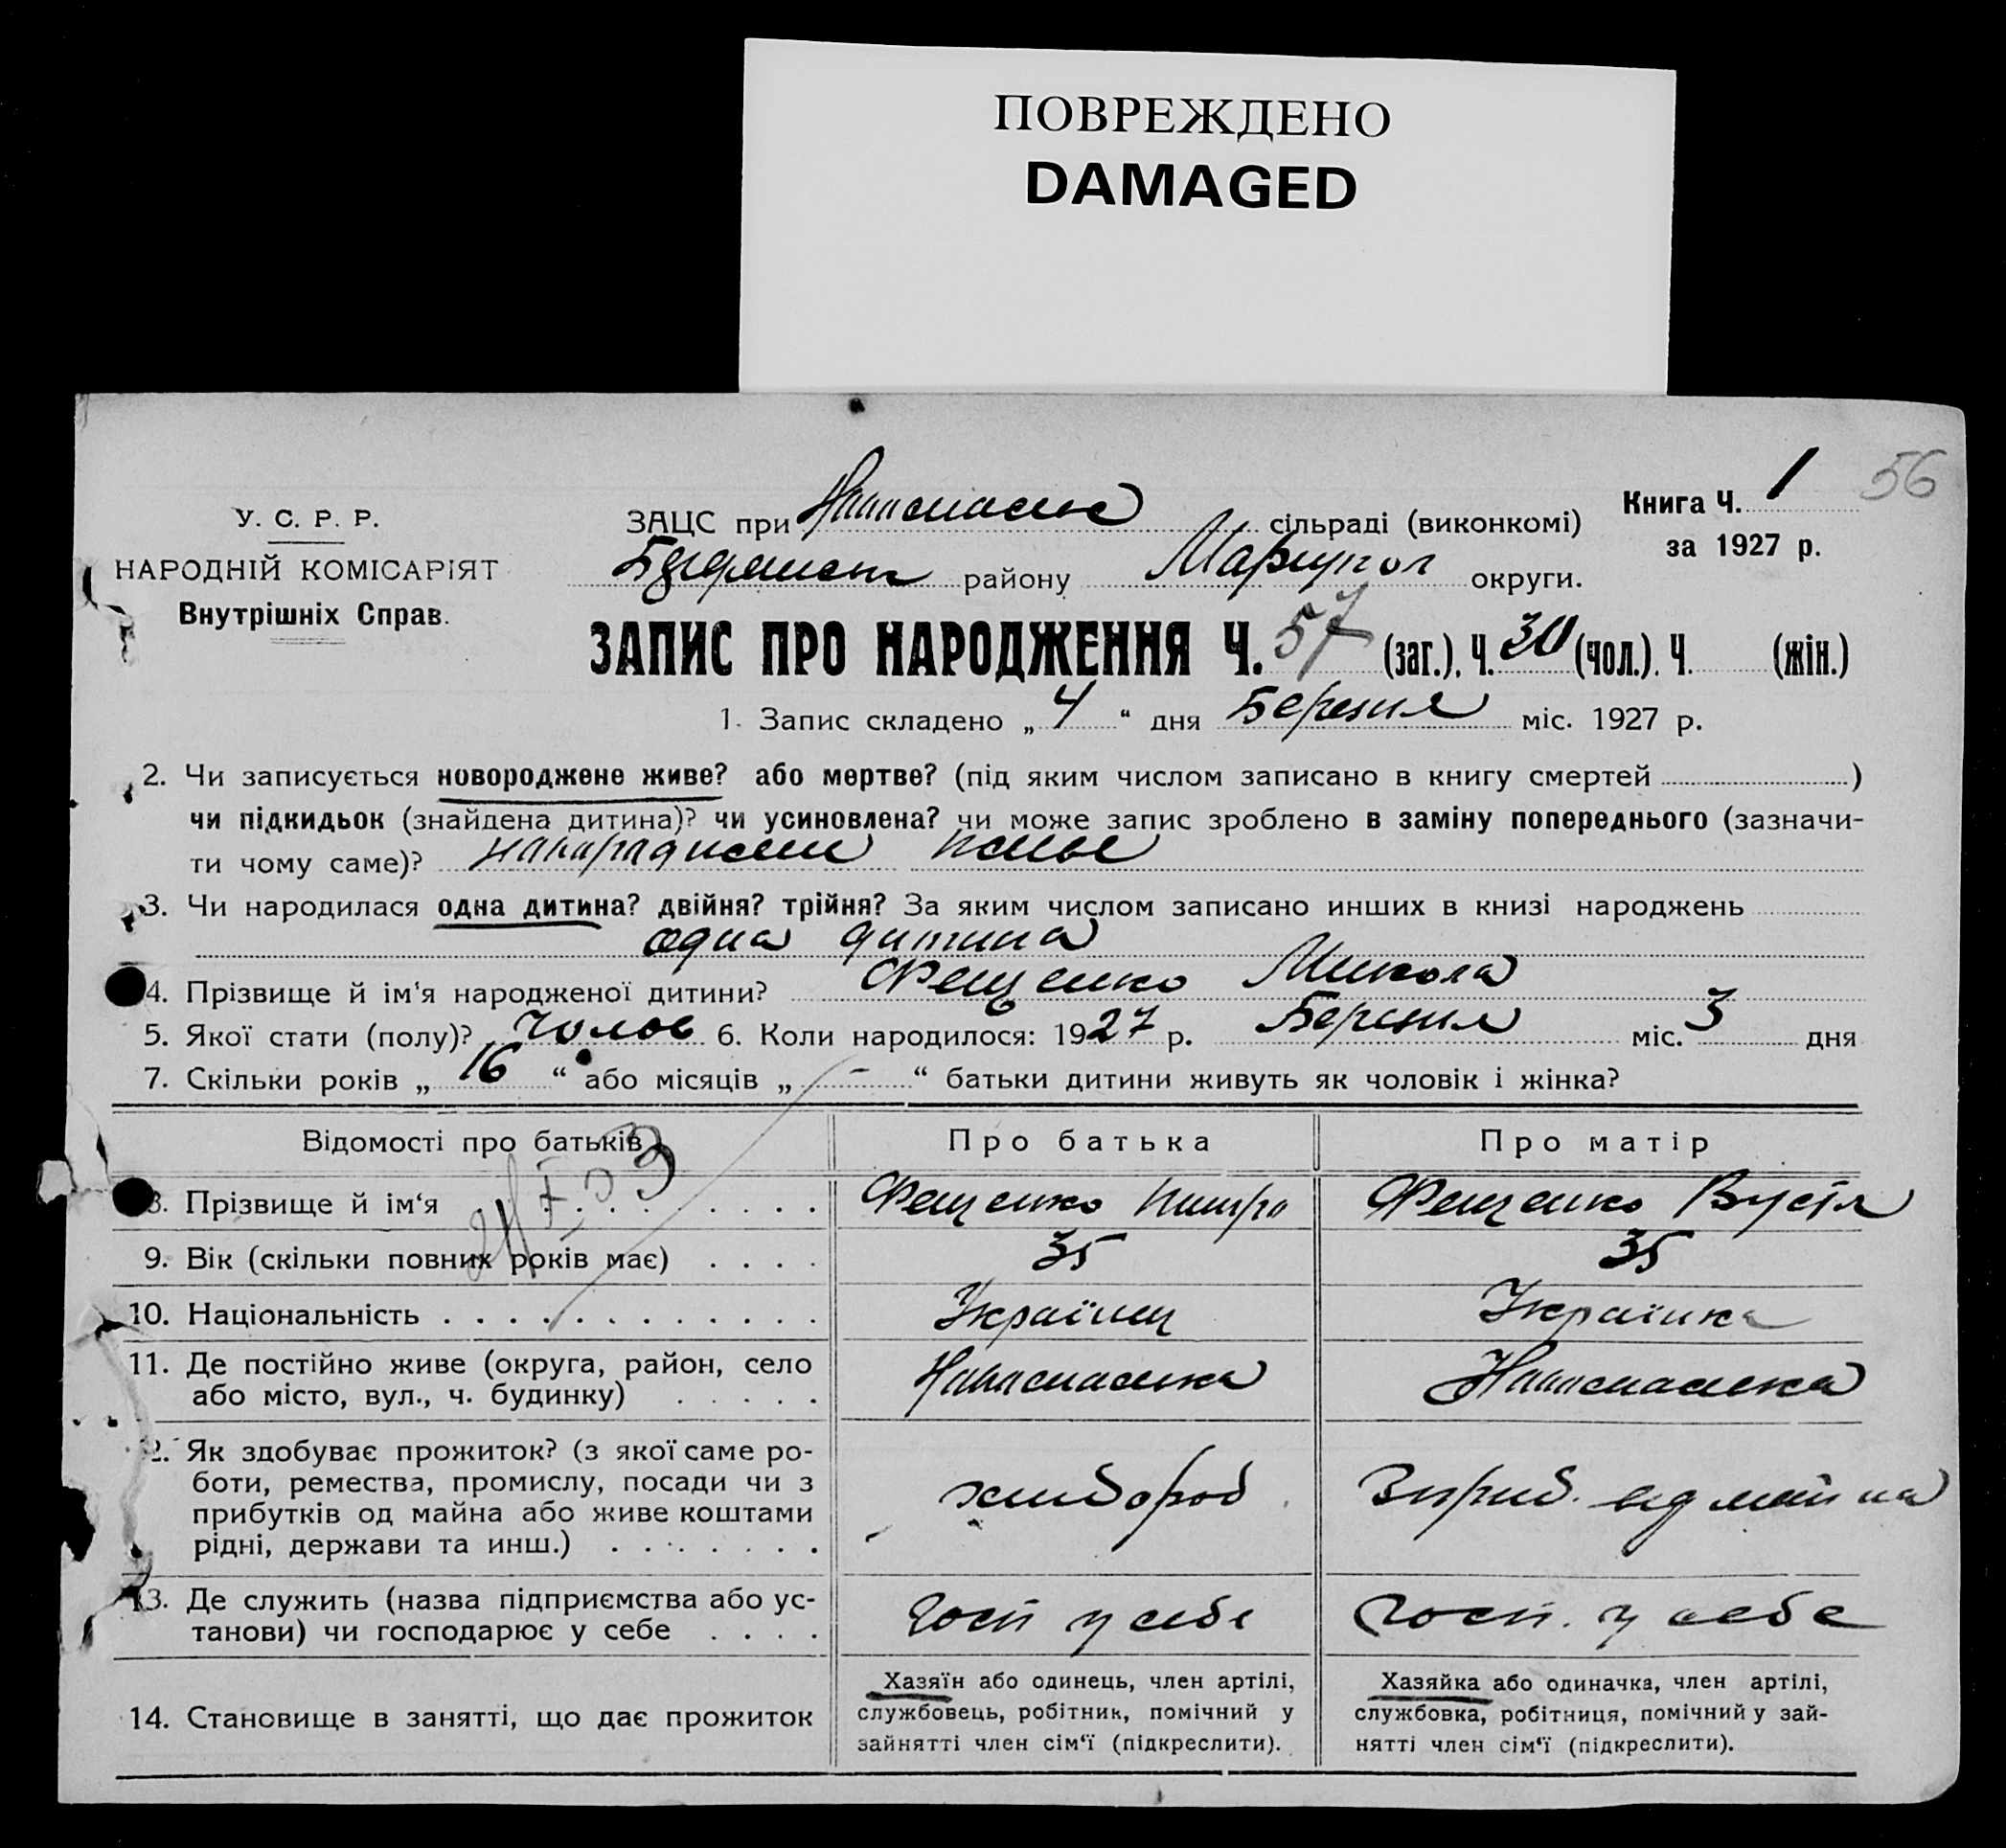 ПОВРЕЖДЕНО
DAMAGED
56
Книга Ч. 1
за 1927 р.
У. С. Р. Р.
НАРОДНІЙ КОМІСАРІЯТ
Внутрішніх Справ.
ЗАЦС при сільраді (виконкомі)
району Маріупол округи.
ЗАПИС ПРО НАРОДЖЕННЯ Ч. 57 (заг.), Ч. 30 (чол.). Ч. (жін.)
1. Запис складено „ 4 “ дня Березня міс. 1927 р.
2. Чи записується новороджене живе? або мертве? (під яким числом записано в книгу смертей )
чи підкидьок (знайдена дитина)? чи усиновлена? чи може запис зроблено в заміну попереднього (зазначи-
ти чому саме)?
3. Чи народилася одна дитина? двійня? трійня? За яким числом записано инших в книзі народжень
одна дитина
4. Прізвище й ім'я народженої дитини? Фещенко Микола
5. Якої стати (полу)? Чолов 6. Коли народилося: 1927 р. Березня міс. 3 дня
7. Скільки років „ 16 “ або місяців „ - “ батьки дитини живуть як чоловік і жінка?
Відомості про батьків
Про батька
Про матір
8. Прізвище й ім‘я
Фещенко Питро
Фещенко Вустя
9. Вік (скільки повних років має)
35
35
10. Національність
Українц
Українка
11. Де постійно живе (округа, район, село
або місто, вул., ч. будинку)
2. Як здобуває прожиток? (з якої саме ро-
боти, ремества, промислу, посади чи з
прибутків од майна або живе коштами
рідні, держави та инш.)
хлибороб
од майна
13. Де служить (назва підприємства або ус-
танови) чи господарює у себе
Госп у себе
Госп. у себе
14. Становище в занятті, що дає прожиток
Хазяїн або одинець, член артілі,
службовець, робітник, помічний у
зайнятті член сім‘ї (підкреслити).
Хазяйка або одиначка, член артілі,
службовка, робітниця, помічний у зай-
нятті член сім‘ї (підкреслити).